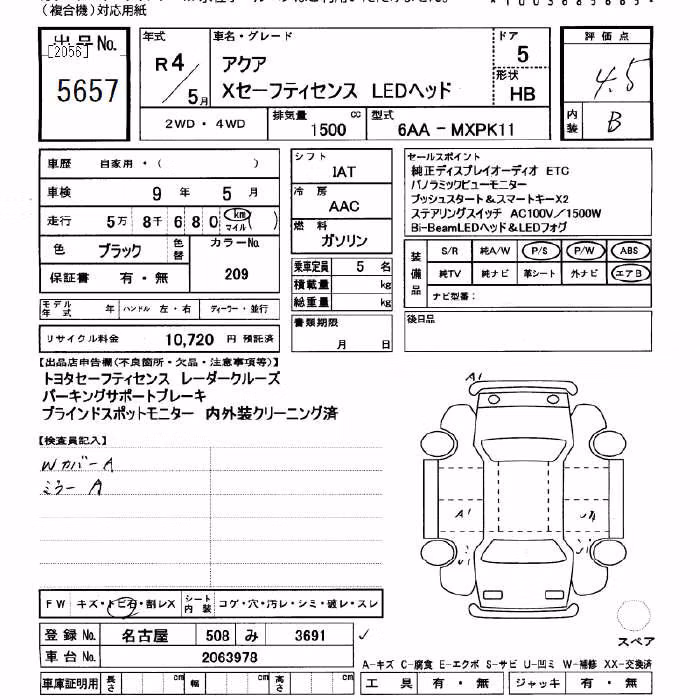 （複合機）対応用紙
出品No.
[2056]
5657
年式
R4／5月
車名・グレード
アクア
Xセーフティセンス LEDヘッド
ドア
5
形状
HB
評価点
4.5
内装
B
2WD・4WD
排気量
1500 cc
型式
6AA－MXPK11
車歴 自家用・（ ）
車検 9年 5月
走行 5万 8千 6 8 0 km マイル（ ）
色 ブラック 色替
カラーNo.
209
保証書 有・無
モデル年式 年 ハンドル 左・右 ディーラー・並行
リサイクル料金 10,720 円 預託済
シフト
IAT
冷房
AAC
燃料
ガソリン
乗車定員 5 名
積載量 kg
総重量 kg
書類期限
月 日
セールスポイント
純正ディスプレイオーディオ ETC
パノラミックビューモニター
プッシュスタート＆スマートキーX2
ステアリングスイッチ AC100V／1500W
Bi-BeamLEDヘッド＆LEDフォグ
装備品
S/R 純A/W P/S P/W ABS
純TV 純ナビ 革シート 外ナビ エアB
ナビ型番：
後日品
【出品店申告欄(不良箇所・欠品・注意事項等)】
トヨタセーフティセンス レーダークルーズ
パーキングサポートブレーキ
ブラインドスポットモニター 内外装クリーニング済
【検査員記入】
Wカバー A
ミラー A
A1
A1
FW キズ・トビ石・割レX
シート内装 コゲ・穴・汚レ・シミ・破レ・スレ
登録No. 名古屋 508 み 3691 ✓
車台No. 2063978
車庫証明用 長さ cm 幅 cm 高さ cm
スペア
A-キズ C-腐食 E-エクボ S-サビ U-凹ミ W-補修 XX-交換済
工具 有・無 ジャッキ 有・無